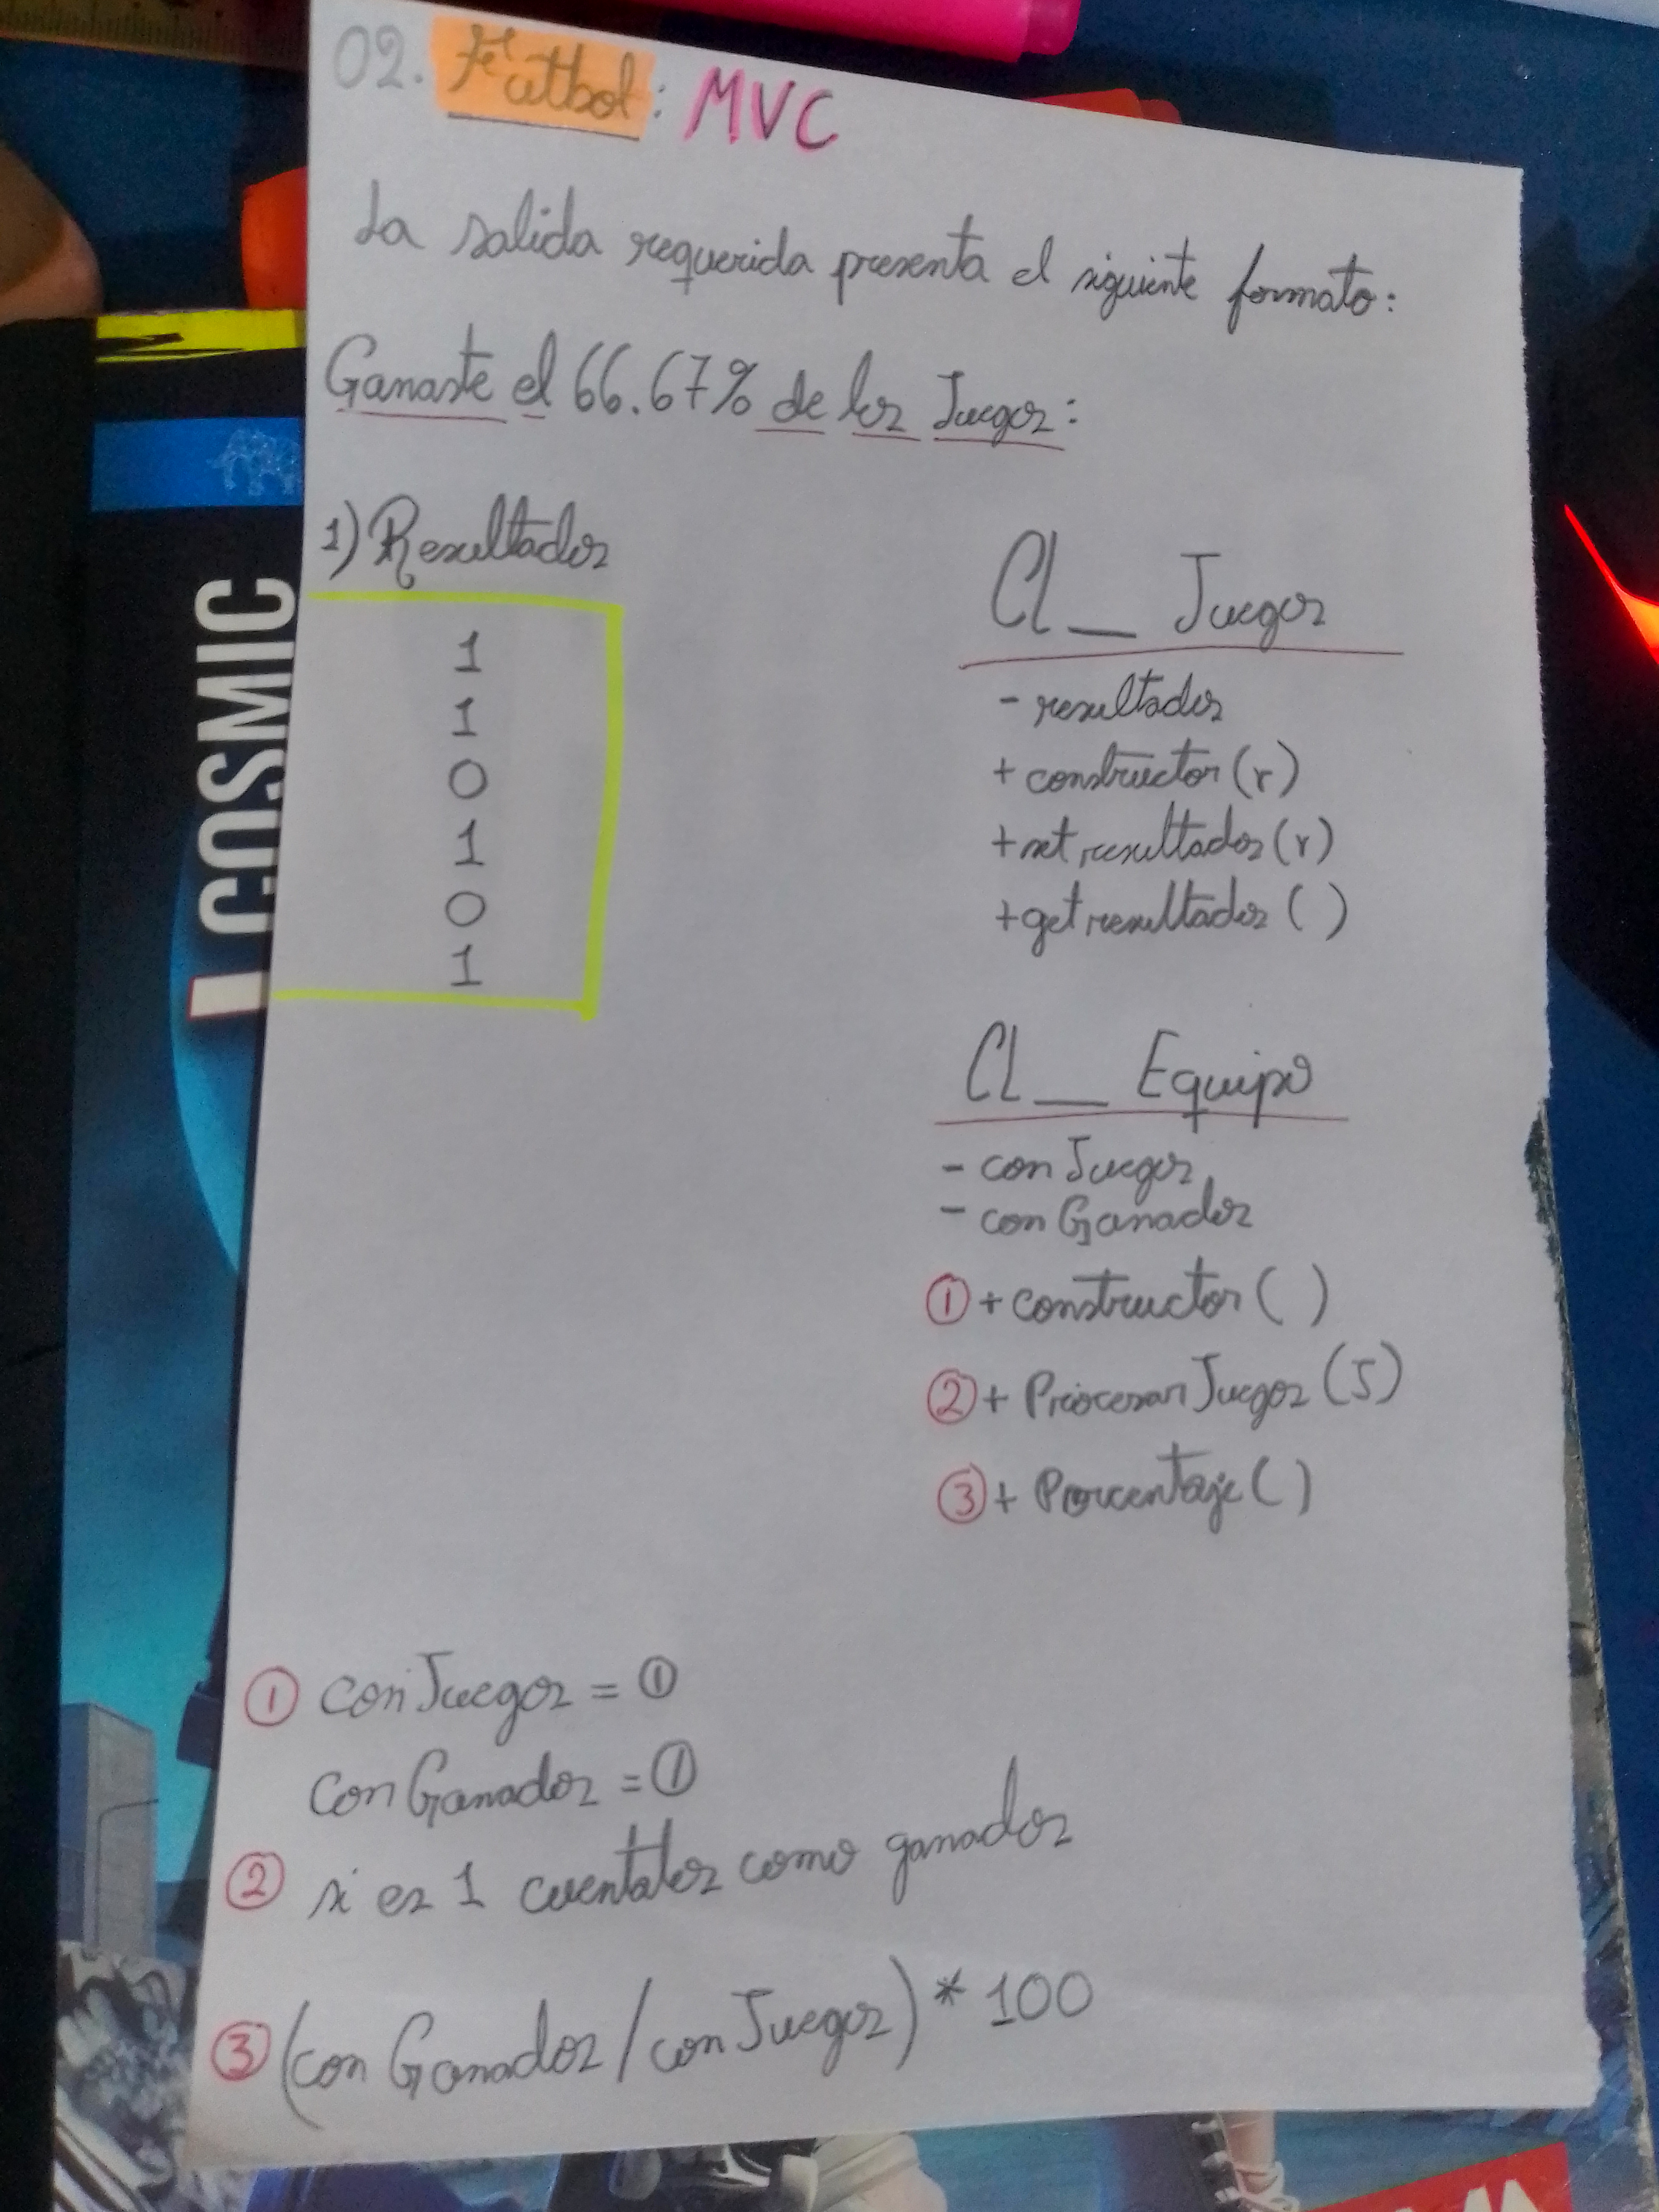 02. Fútbol: MVC
La salida requerida presenta el siguiente formato:
Ganaste el 66.67% de los Juegos:
1) Resultados
1
1
0
1
0
1
Cl_Juegos
- resultados
+ constructor(r)
+ set resultados(r)
+ get resultados( )
Cl_Equipo
- con Juegos
- con Ganados
① + constructor( )
② + Procesar Juegos(J)
③ + Porcentaje( )
① con Juegos = ①
con Ganados = ①
② si es 1 cuentalos como ganados
③ (con Ganados / con Juegos) * 100
COSMIC